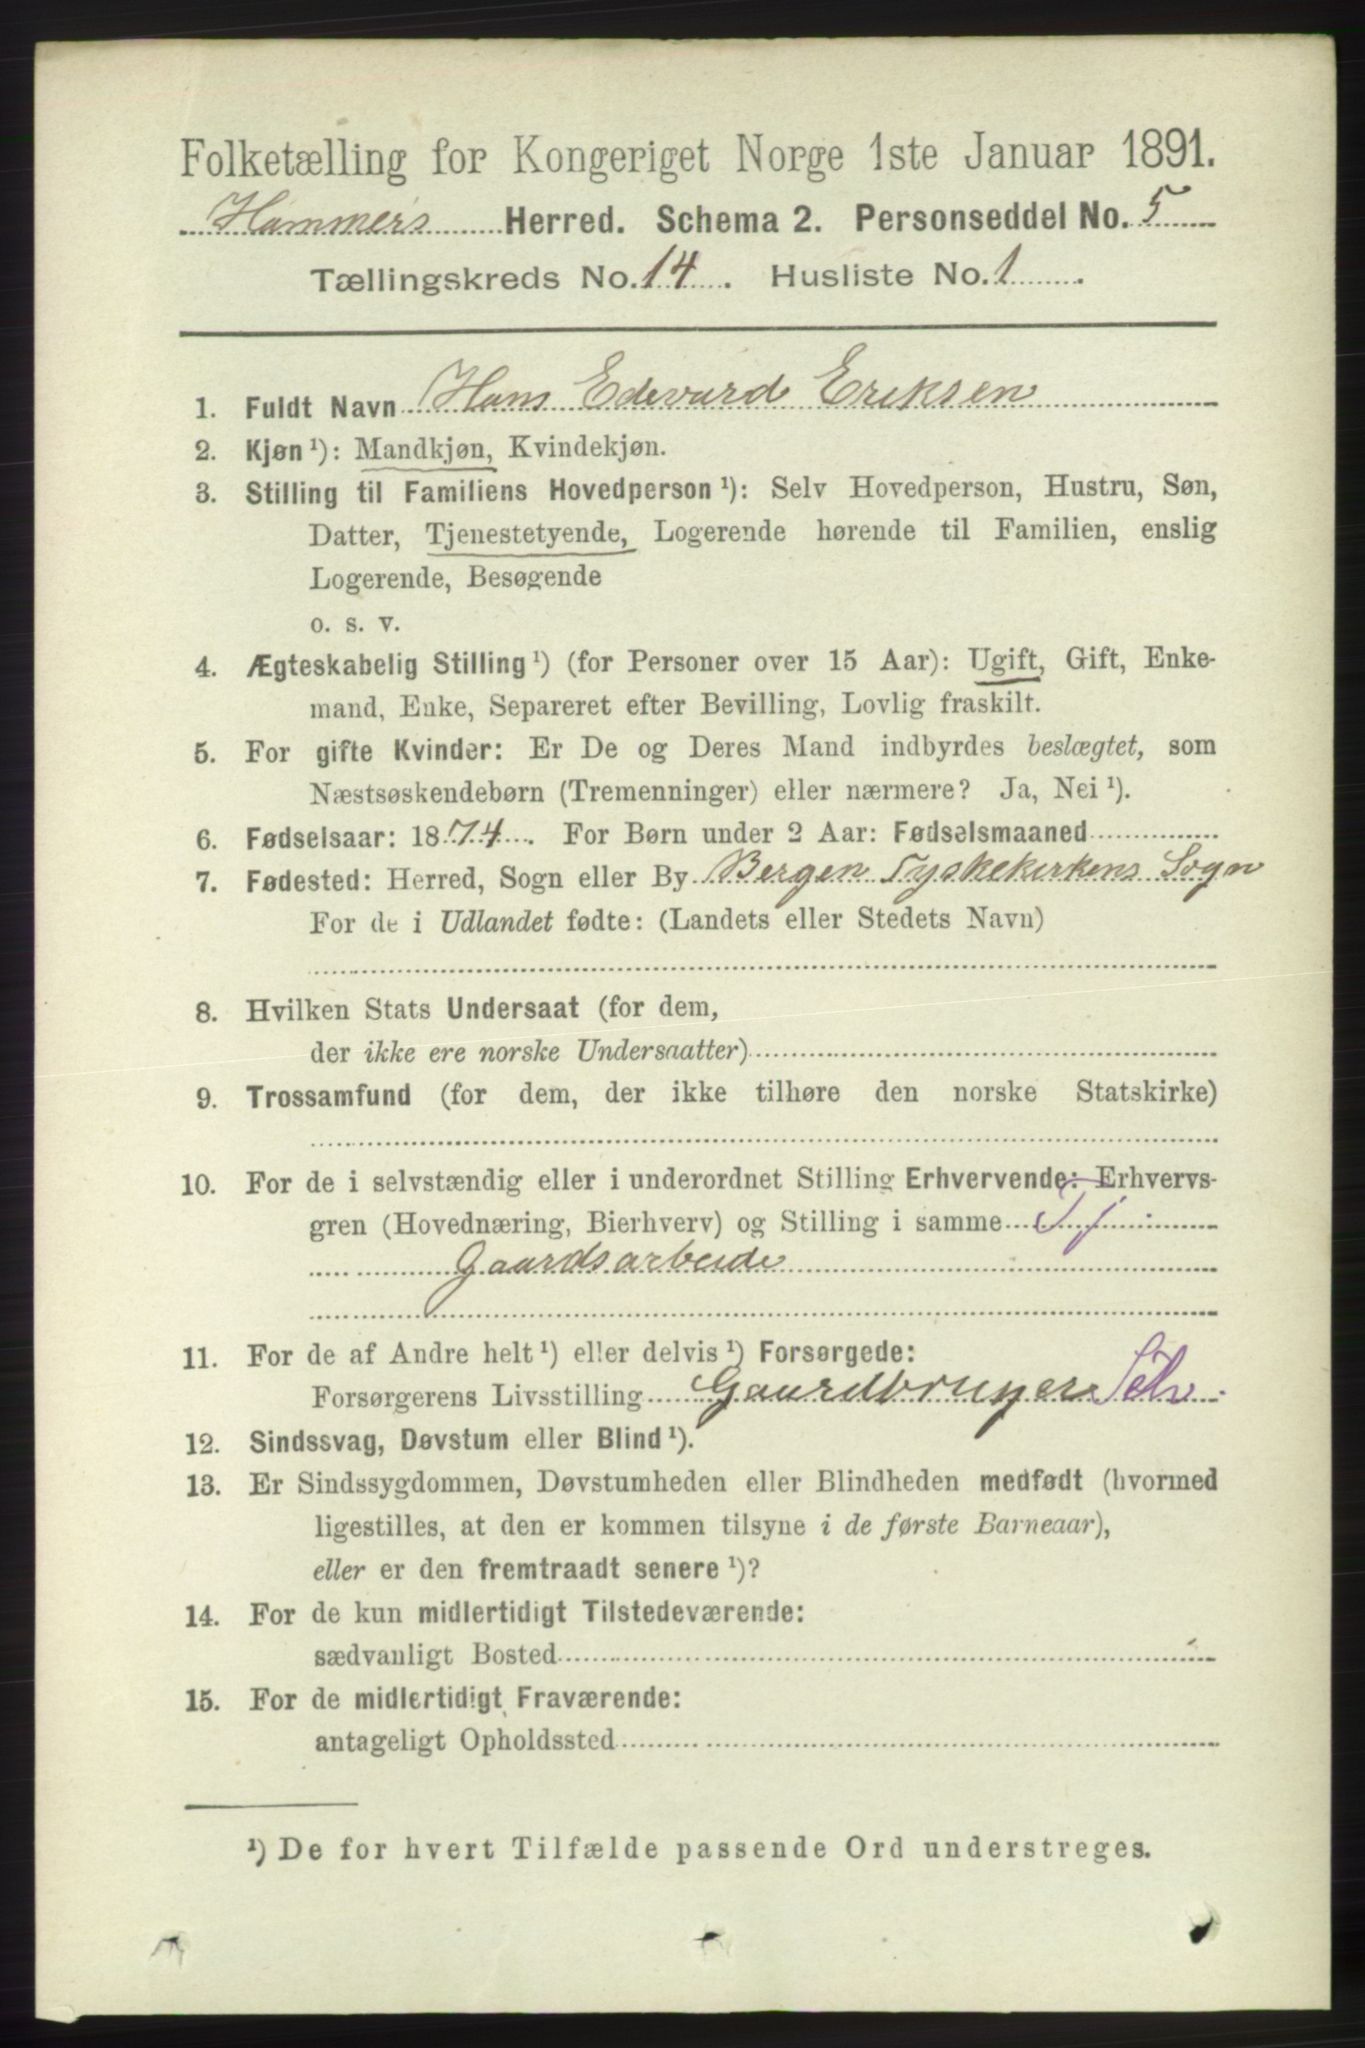 Folketælling for Kongeriget Norge 1ste Januar 1891.
Hammers Herred. Schema 2. Personseddel No. 5
Tællingskreds No. 14. Husliste No. 1.
1. Fuldt Navn Hans Edevard Eriksen
2. Kjøn¹): Mandkjøn, Kvindekjøn.
3. Stilling til Familiens Hovedperson¹): Selv Hovedperson, Hustru, Søn,
Datter, Tjenestetyende, Logerende hørende til Familien, enslig
Logerende, Besøgende
o. s. v.
4. Ægteskabelig Stilling¹) (for Personer over 15 Aar): Ugift, Gift, Enke-
mand, Enke, Separeret efter Bevilling, Lovlig fraskilt.
5. For gifte Kvinder: Er De og Deres Mand indbyrdes beslægtet, som
Næstsøskendebørn (Tremenninger) eller nærmere? Ja, Nei¹).
6. Fødselsaar: 1874. For Børn under 2 Aar: Fødselsmaaned
7. Fødested: Herred, Sogn eller By Bergen Tyskekirkens Sogn
For de i Udlandet fødte: (Landets eller Stedets Navn)
8. Hvilken Stats Undersaat (for dem,
der ikke ere norske Undersaatter)
9. Trossamfund (for dem, der ikke tilhøre den norske Statskirke)
10. For de i selvstændig eller i underordnet Stilling Erhvervende: Erhvervs-
gren (Hovednæring, Bierhverv) og Stilling i samme Tj
Gaardsarbeide
11. For de af Andre helt¹) eller delvis¹) Forsørgede:
Forsørgerens Livsstilling Gaardbruger Selv.
12. Sindssvag, Døvstum eller Blind¹).
13. Er Sindssygdommen, Døvstumheden eller Blindheden medfødt (hvormed
ligestilles, at den er kommen tilsyne i de første Barneaar),
eller er den fremtraadt senere¹)?
14. For de kun midlertidigt Tilstedeværende:
sædvanligt Bosted
15. For de midlertidigt Fraværende:
antageligt Opholdssted
¹) De for hvert Tilfælde passende Ord understreges.